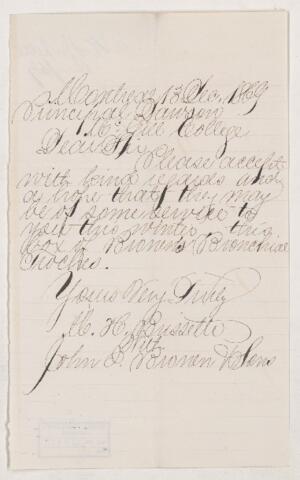 Montreal 13 Dec. 1869
Principal Dawson
McGill College
Dear Sir
Please accept
with kind regards and
a hope that they may
be of some service to
you this winter, this
box of Brown's Bronchial
Troches.
Yours Very Truly
M. H. Brissette
With
John I. Brown & Sons